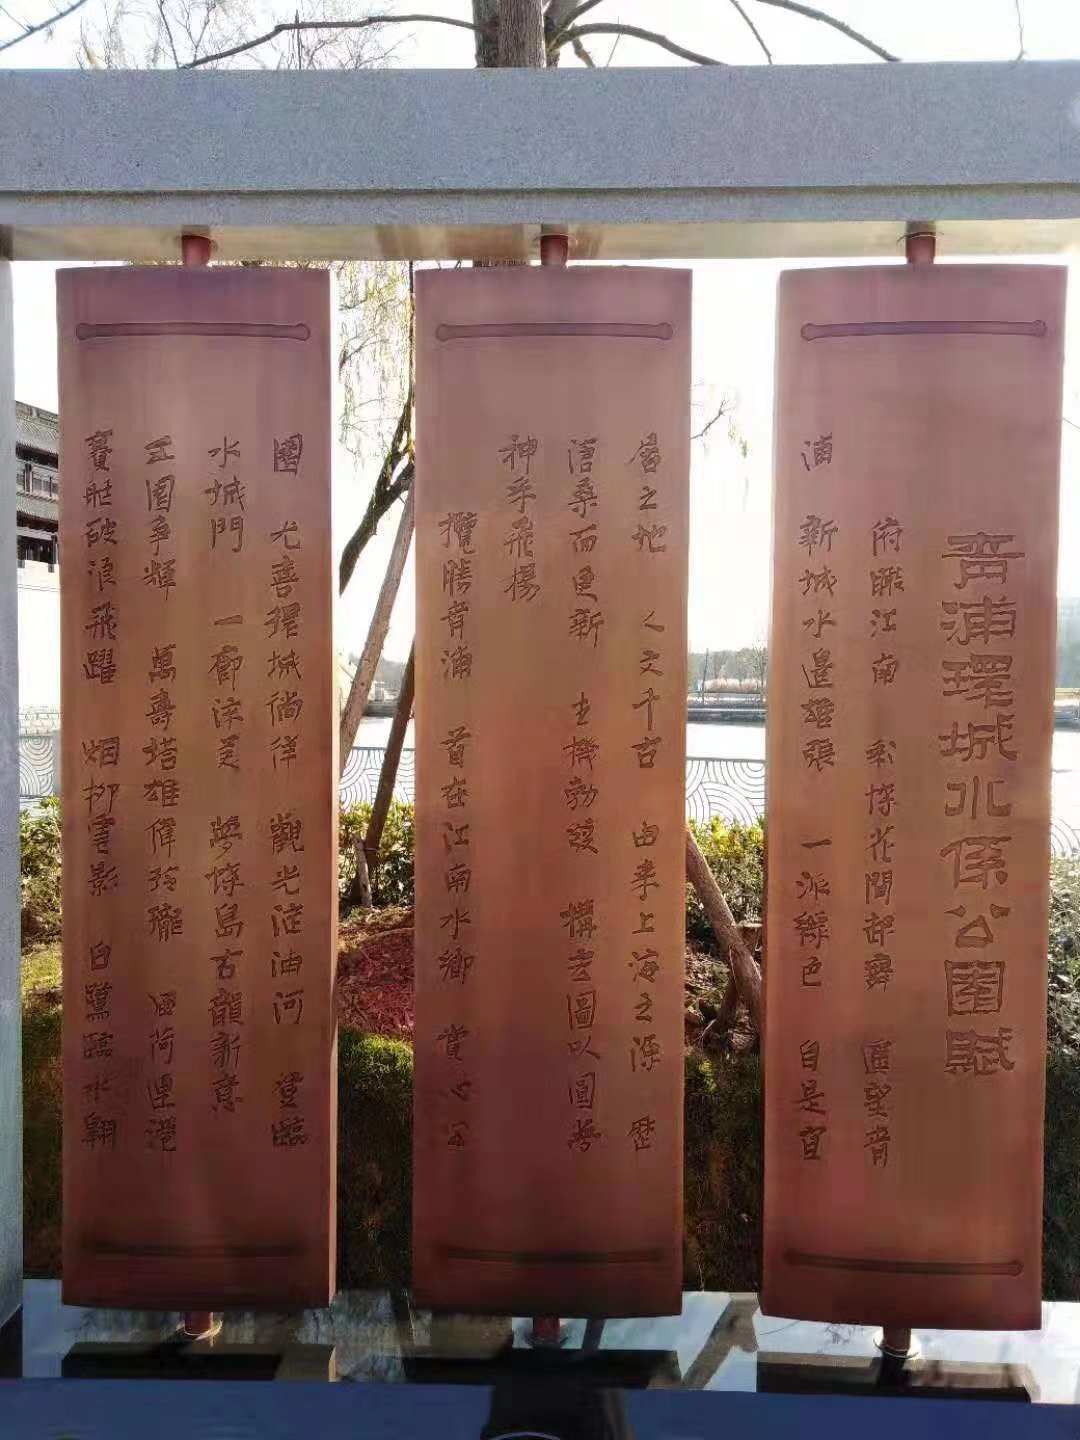 青浦環城水係公園賦
俯瞰江南 彩條花間部齊 區望青
浦 新城水邊雄張 一派綠色 自是宜
居之地 人文千古 由來上海之源 歷
滄桑而更新 生機勃發 構宏圖以圖
神采飛揚
攬勝青浦 首在江南水鄉 賞心公
園 尤喜環城徜徉 觀光淀浦河 重臨
水城門 一廊淙 夢縈島古韻新意
五園爭輝 萬壽塔雄偉玲瓏 西荷
賽艇破浪飛躍 烟柳雲影 白鷺臨水翱